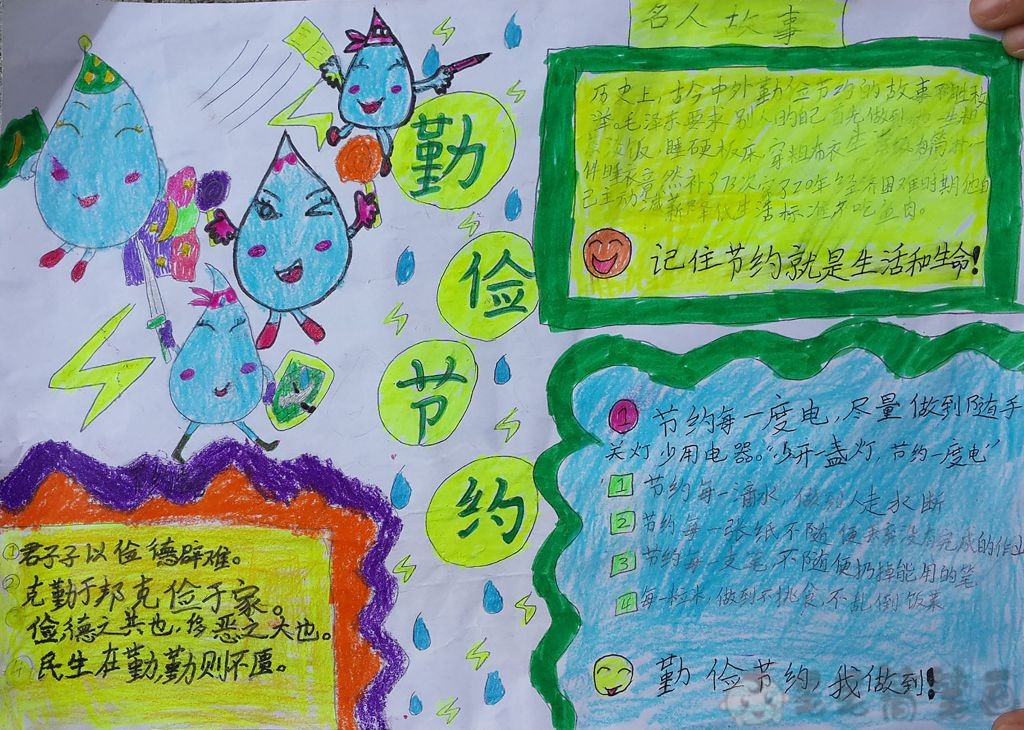 勤
俭
节
约
名人故事
历史上,古今中外勤俭节约的故事不胜枚
举。毛泽东要求别人的自己首先做到。一生粗
茶淡饭,睡硬板床,穿粗布衣,生活
件睡衣竟然补了73次,穿了20年。经济困难时期,他自
己主动减薪降低生活标准不吃鱼肉。
记住节约就是生活和生命!
①君子子以俭德辟难。
②克勤于邦克俭于家。
俭德之共也,侈恶之大也。
④民生在勤,勤则不匮。
1 节约每一度电,尽量做到随手
关灯少用电器。“少开一盏灯,节约一度电”
1 节约每一滴水,做到人走水断
2 节约每一张纸不随便丢弃没有完成的作业
3 节约每一支笔,不随便扔掉能用的笔
4 每一粒米,做到不挑食,不乱倒饭菜
勤俭节约,我做到!